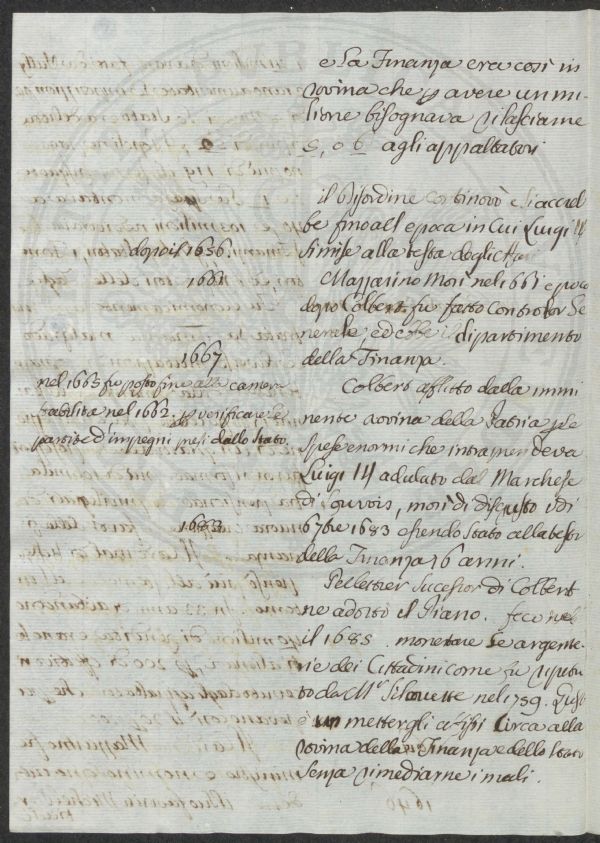 e la Finanza era così in
rovina che p avere un mi-
lione bisognava rilasciarne
5, o 6 agli appaltatori
il disordine continovò e si accreb
be fino all'epoca in cui Luigi 14
depoi il 1656.
si mise alla testa degli
1661
Mazzarino morì nel 661 e poco
dopo Colbert fu fatto Controlor Ge
nerale, ed ebbe il dipartimento
1667
della Finanza.
nel 1665 fu posto fine alla camera
stabilita nel 1662. p verificare le
partite d'impegni presi dallo Stato.
Colbert afflitto dalla immi
nente rovina della Patria p le
spese enormi che intraprendeva
Luigi 14 adulato dal Marchese
di Louvois, morì di disgusto i dì
1683
6 7bre 1683 essendo stato alla testa
della Finanza 16 anni.
Pelletier sucessor di Colbert
ne adottò il Piano. fece nel
il 1685. monetare le argente-
rie dei Cittadini come fu ripetu
to da Mr Silouette nel 759. Questo
è un mettergli avvisi circa alla
rovina della Finanza e dello stato
senza rimediarne i mali.